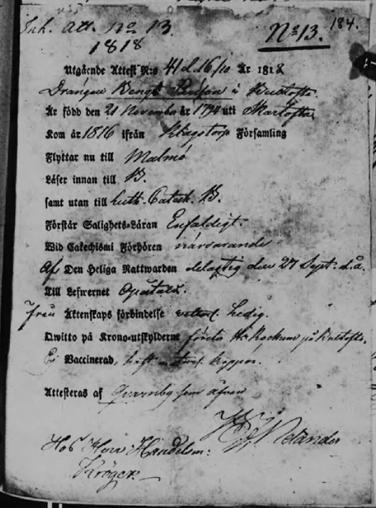 Ink. Att. No 13.
1818
No 13.
184.
Utgående Attest N:o 41 d. 16/10 År 1818
Drängen Bengt i
Är född den 21 Novemb. år 1794 uti
Kom år 1816 ifrån Församling
Flyttar nu till Malmö
Läser innan till B.
samt utan till Luth. Catech. B.
Förstår Salighets-Läran Enfaldigt.
Wid Catechismi Förhören närvarande
Af Den Heliga Nattwarden delaktig den 27 Sept. d.å.
Till Lefwernet
Från Äktenskaps förbindelse veterl. ledig.
Qwitto på Krono-utskylderne på
Ej Vaccinerad, haft koppor.
Attesteras af
Hos Herr Handelsm:
Kröger